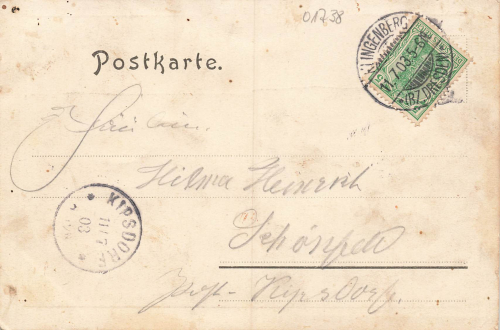 01738
Postkarte.
KLINGENBERG
11.7.03.5-6N.
(BZ. DRESDEN)
Fräulein
Hilma Heinrich
Schönfeld
Post Kipsdorf.
KIPSDORF
11.7.
03